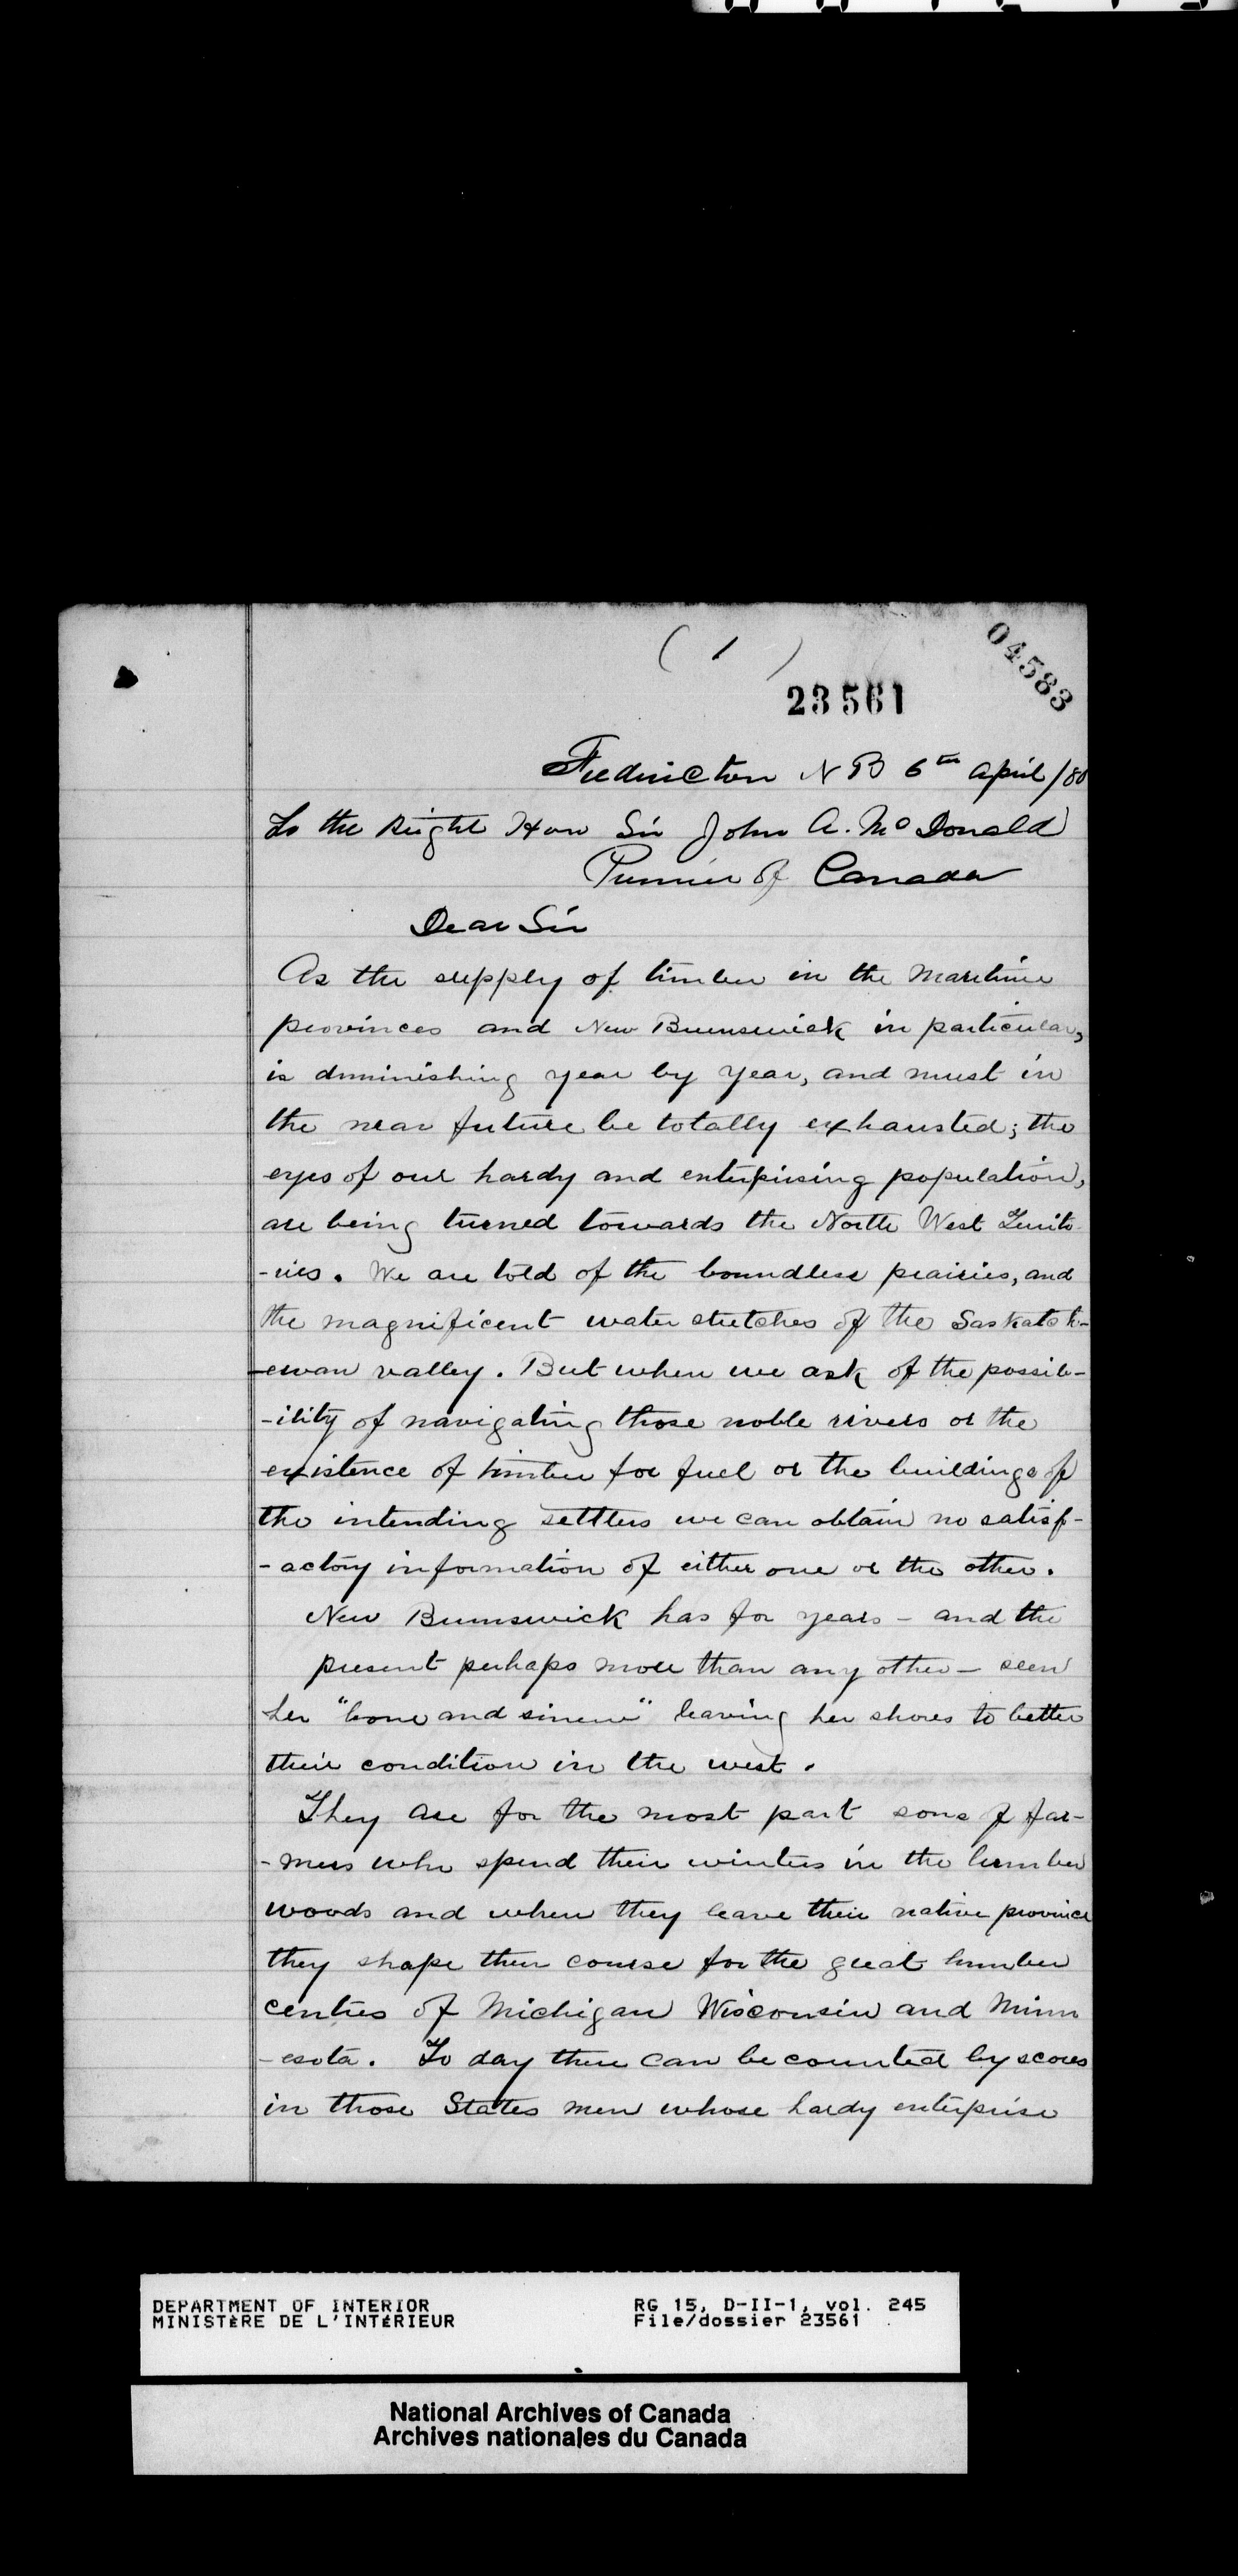 ( 1 )
04583
23561
Fredericton N B 6th April /80
To the Right Hon Sir John A. McDonald
Premier of Canada
Dear Sir
As the supply of timber in the Maritime
provinces and New Brunswick in particular,
is diminishing year by year, and must in
the near future be totally exhausted; the
eyes of our hardy and enterprising population,
are being turned towards the North West Territo
-ries. We are told of the boundless prairies, and
the magnificent water stretches of the Saskatch-
-ewan valley. But when we ask of the possib-
-ility of navigating those noble rivers or the
existence of timber for fuel or the buildings of
the intending settlers we can obtain no satisf-
-actory information of either one or the other.
New Brunswick has for years - and the
present perhaps more than any other - seen
her "bone and sinew" leaving her shores to better
their condition in the west.
They are for the most part sons of far-
-mers who spend their winters in the lumber
woods and when they leave their native province
they shape their course for the great lumber
centres of Michigan Wisconsin and Minn
-esota. To day there can be counted by scores
in those States men whose hardy enterprise
DEPARTMENT OF INTERIOR
MINISTÈRE DE L'INTÉRIEUR
RG 15, D-II-1, vol. 245
File/dossier 23561
National Archives of Canada
Archives nationales du Canada